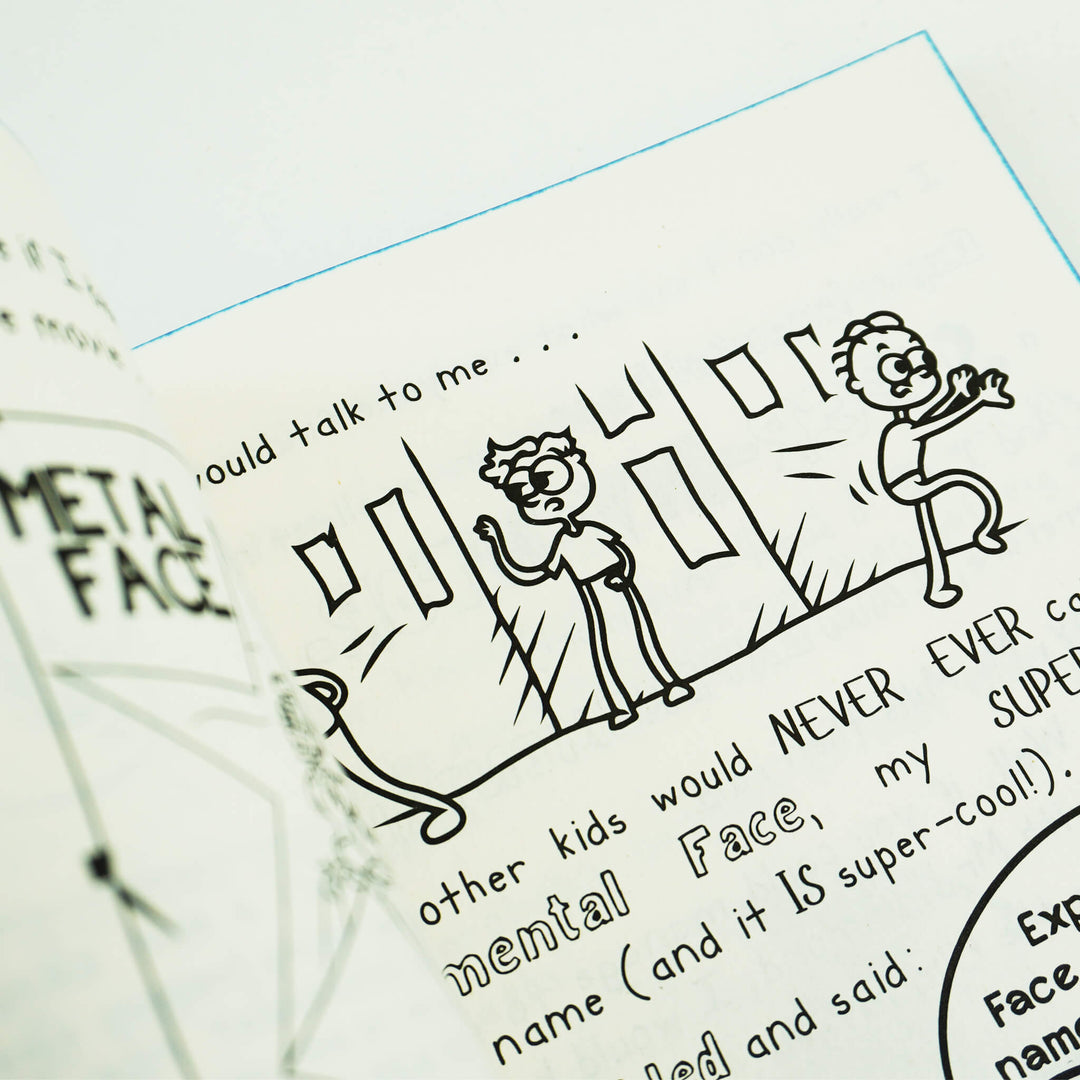 METAL
FACE
would talk to me . . .
other kids would NEVER EVER
mental Face, my SUPER
name (and it IS super-cool!).
and said:
Face